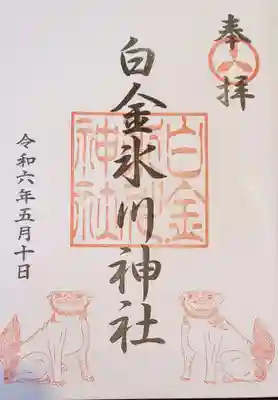 奉拝
白金氷川神社
白金氷川神社
令和六年五月十日